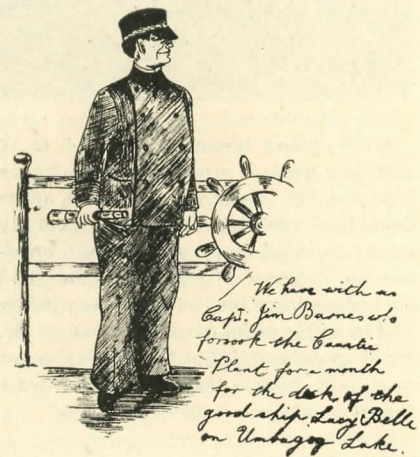 We have with us
Capt. Jim Barnes who
forsook the Caustic
Plant for a month
for the deck of the
good ship Lucy Belle
on Umbagog Lake.